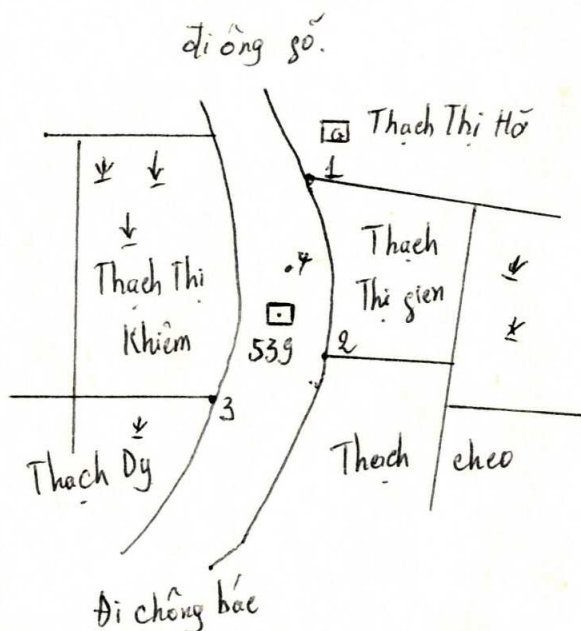 đi ông số.
Thạch Thị Hỡ
1
Thạch
Thị gien
4
Thạch Thị
Khiêm
539
2
3
Thạch Dy
Thạch cheo
Đi chông bác